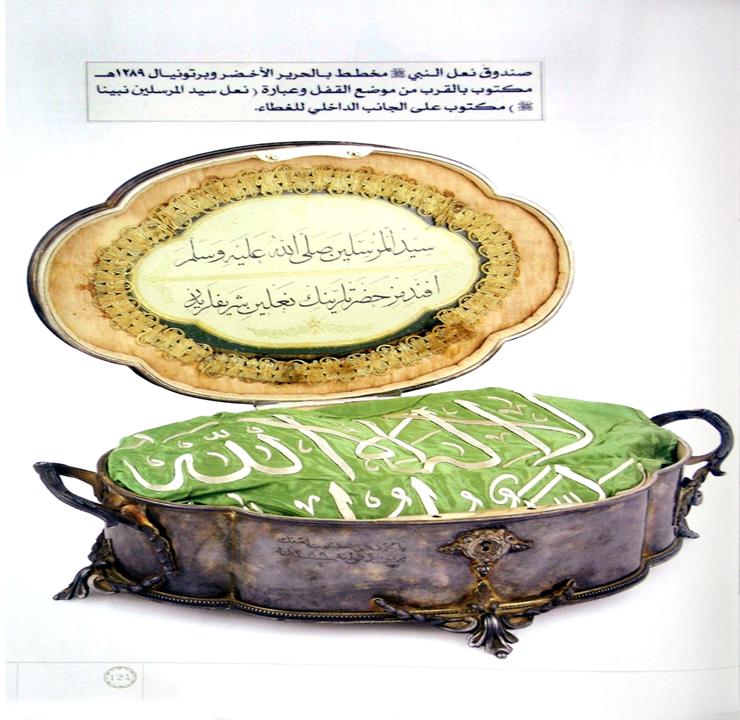 صندوق نعل النبي ﷺ مخطط بالحرير الأخضر وبرتونيال ١٢٨٩هـ
مكتوب بالقرب من موضع القفل وعبارة ( نعل سيد المرسلين نبينا
ﷺ ) مكتوب على الجانب الداخلي للغطاء.
سيد المرسلين صلى الله عليه وسلم
افندمز حضرتلرينك نعلين شريفلريدر
لا اله الا الله